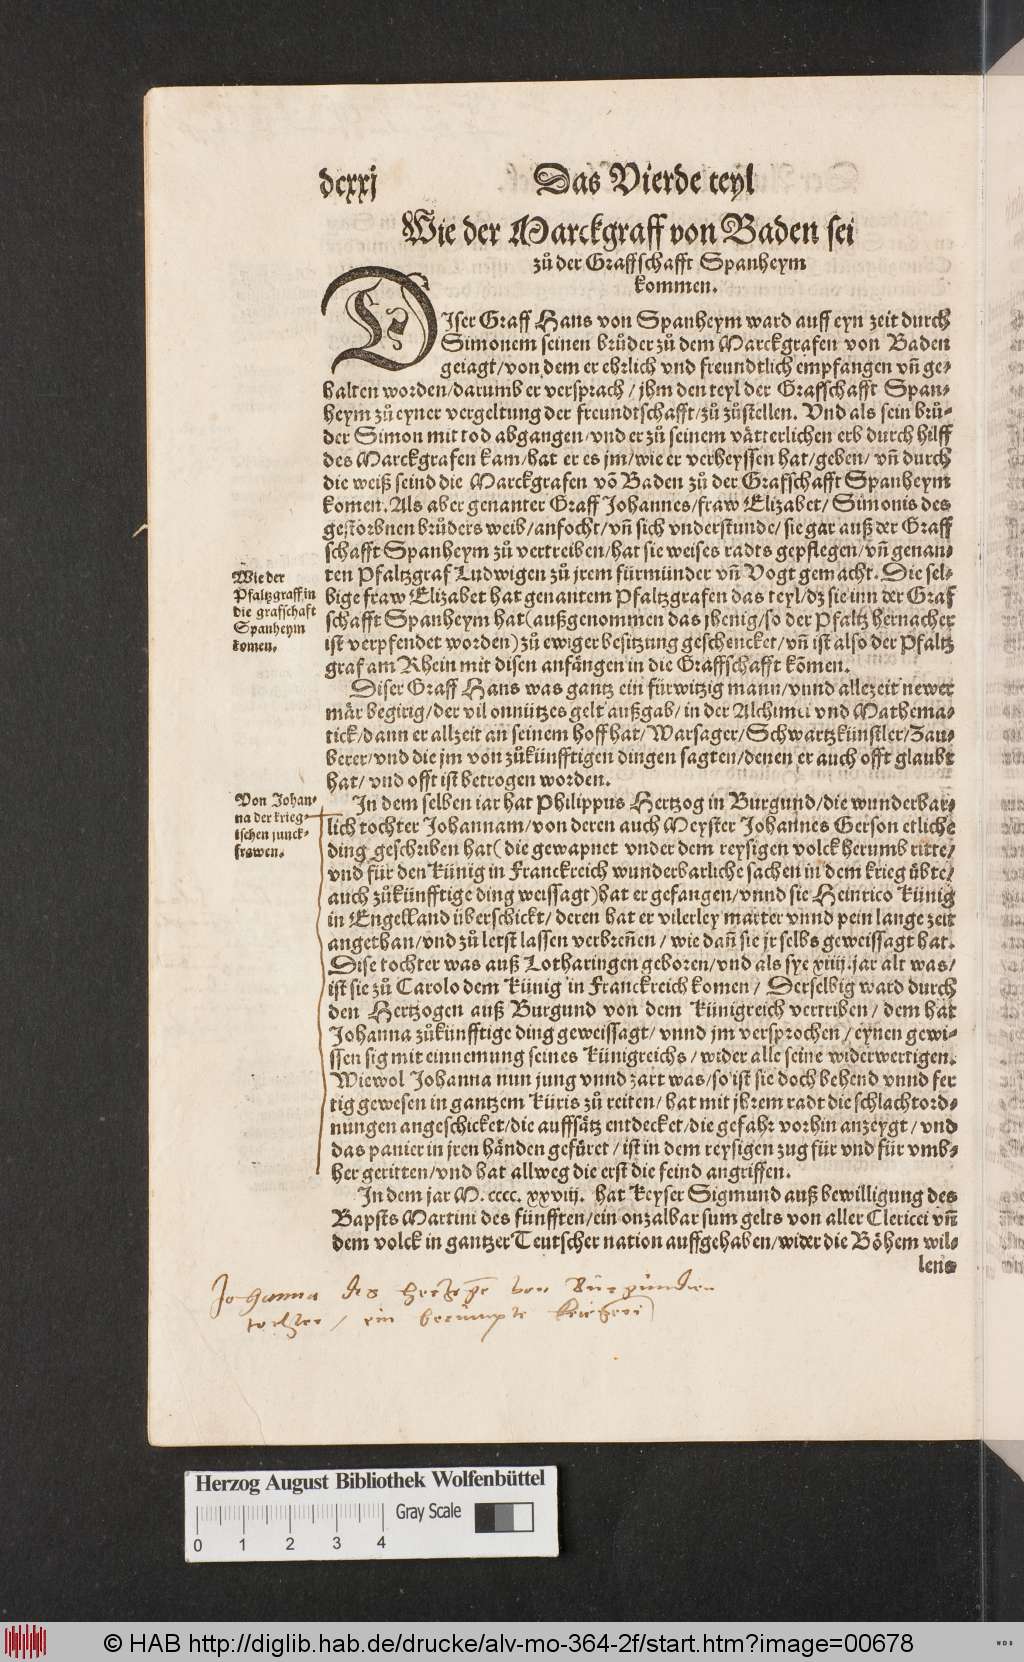 dcxxj
Das Vierde teyl
Wie der Marckgraff von Baden sei
zů der Graffschafft Spanheym
kommen.
DIser Graff Hans von Spanheym ward auff eyn zeit durch
Simonem seinen brůder zů dem Marckgrafen von Baden
geiagt/von dem er ehrlich vnd freundtlich empfangen vñ ge-
halten worden/darumb er versprach / jhm den teyl der Grafschafft Span-
heym zů eyner vergeltung der freundtschafft/zů zůstellen. Vnd als sein brů-
der Simon mit tod abgangen/vnd er zů seinem vätterlichen erb durch hilff
des Marckgrafen kam/hat er es jm/wie er verheyssen hat/geben/ vñ durch
die weiß seind die Marckgrafen võ Baden zů der Grafschafft Spanheym
komen. Als aber genanter Graff Johannes/fraw Elizabet/ Simonis des
gestorbnen brůders weib/anfocht/vñ sich vnderstunde/sie gar auß der Graff
schafft Spanheym zů vertreiben/hat sie weises radts gepflegen/vñ genan-
ten Pfaltzgraf Ludwigen zů jrem fürmünder vñ Vogt gemacht. Die sel-
bige fraw Elizabet hat genantem Pfaltzgrafen das teyl/dz sie inn der Graf
schafft Spanheym hat(außgenommen das jhenig/so der Pfaltz hernacher
ist verpfendet worden)zů ewiger besitzung geschencket/vñ ist also der Pfaltz
graf am Rhein mit disen anfängen in die Graffschafft kõmen.
Wie der
Pfaltzgraff in
die grafschaft
Spanheym
komen.
Diser Graff Hans was gantz ein fürwitzig mann/vnnd allezeit newer
mär begirig/der vil onnützes gelt außgab/in der Alchimei vnd Mathema-
tick/dann er allzeit an seinem hoff hat/Warsager/Schwartzkünstler/Zau-
berer/vnd die jm von zůkünfftigen dingen sagten/denen er auch offt glaubt
hat/ vnd offt ist betrogen worden.
Von Johan-
na der krieg-
ischen junck-
frawen.
In dem selben iar hat Philippus Hertzog in Burgund/die wunderbar-
lich tochter Johannam/von deren auch Meyster Johannes Gerson etliche
ding geschriben hat(die gewapnet vnder dem reysigen volck herumb ritte/
vnd für den Künig in Franckreich wunderbarliche sachen in dem krieg übte/
auch zůkünfftige ding weissagt)hat er gefangen/vnnd sie Heinrico Künig
in Engelland überschickt/deren hat er vilerley marter vnnd pein lange zeit
angethan/vnd zů letst lassen verbreñen / wie dañ sie jr selbs geweissagt hat.
Dise tochter was auß Lotharingen geboren/vnd als sye xiiij.jar alt was/
ist sie zů Carolo dem Künig in Franckreich komen / Derselbig ward durch
den Hertzogen auß Burgund von dem Künigreich vertriben / dem hat
Johanna zůkünfftige ding geweissagt/ vnnd jm versprochen / eynen gewi-
ssen sig mit einnemung seines Künigreichs / wider alle seine widerwertigen.
Wiewol Johanna nun jung vnnd zart was/so ist sie doch behend vnnd fer
tig gewesen in gantzem Küris zů reiten/ hat mit jhrem radt die schlachtord-
nungen angeschicket/die auffsätz entdecket/die gefahr vorhin anzeygt / vnd
das panier in jren händen gefüret / ist in dem reysigen zug für vnd für vmb-
her geritten/vnd hat allweg die erst die feind angriffen.
In dem jar M. cccc. xxviij. hat Keyser Sigmund auß bewilligung des
Bapsts Martini des fünfften/ein onzalbar sum gelts von aller Clericei vñ
dem volck in gantzer Teutscher nation auffgehaben/wider die Böhem wil-
lens
Johanna des hertzge von Burgunden
tochter / ein berümpte
Herzog August Bibliothek Wolfenbüttel
Gray Scale
0 1 2 3 4
© HAB http://diglib.hab.de/drucke/alv-mo-364-2f/start.htm?image=00678